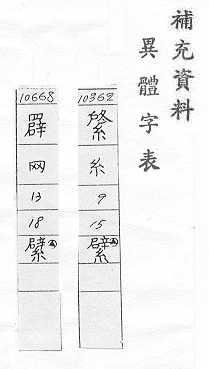 補充資料
異體字表
10362
糸
9
15
繴
10668
网
13
18
繴